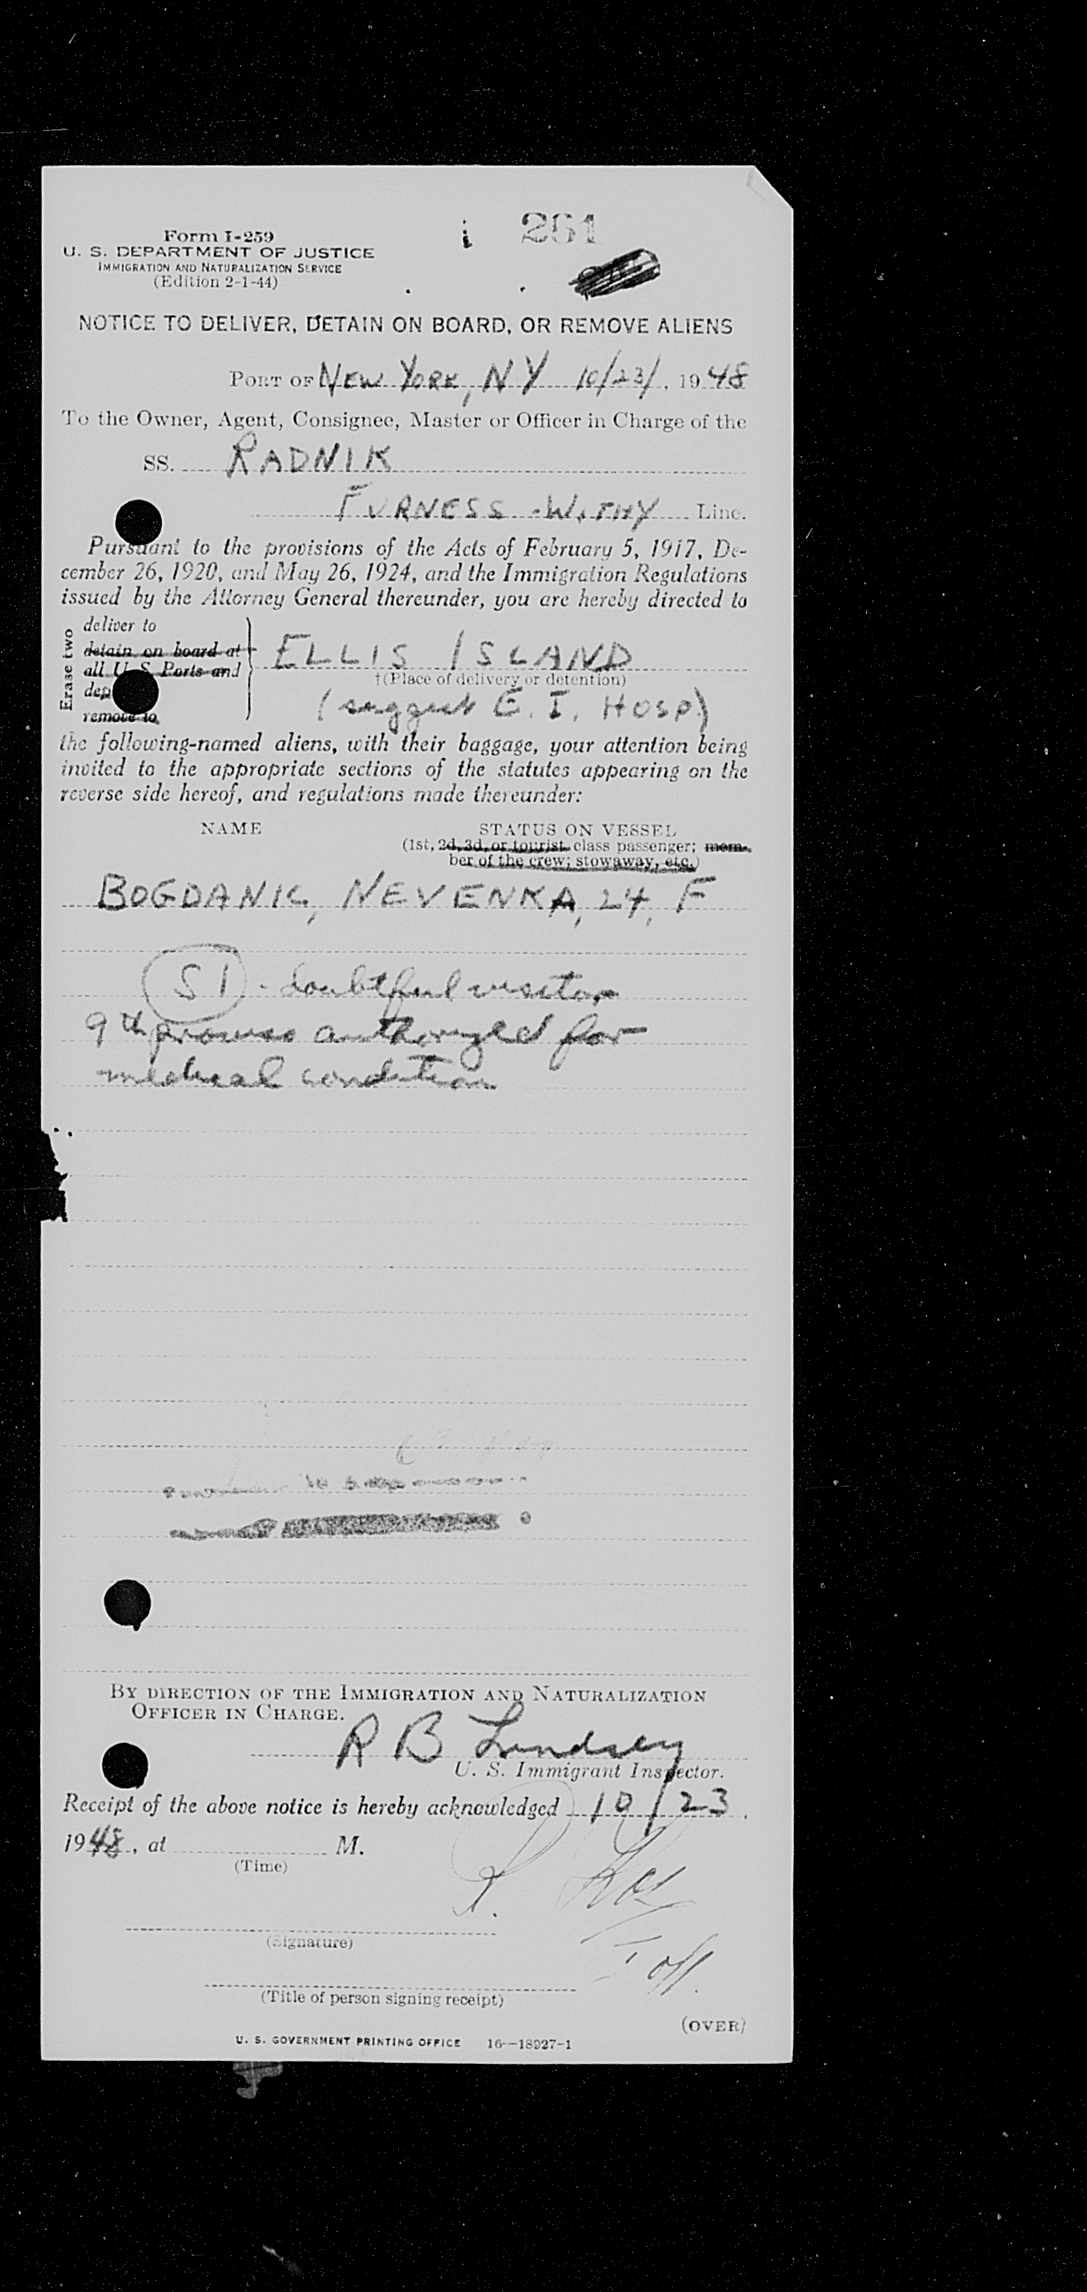 261
Form I-259
U. S. DEPARTMENT OF JUSTICE
IMMIGRATION AND NATURALIZATION SERVICE
(Edition 2-1-44)
NOTICE TO DELIVER, DETAIN ON BOARD, OR REMOVE ALIENS
PORT OF NEW YORK, NY 10/23/, 1948
To the Owner, Agent, Consignee, Master or Officer in Charge of the
SS. RADNIK
FURNESS-WITHY Line.
Pursuant to the provisions of the Acts of February 5, 1917, De-
cember 26, 1920, and May 26, 1924, and the Immigration Regulations
issued by the Attorney General thereunder, you are hereby directed to
Erase two
deliver to
detain on board at
all U S Ports and
dep
remove to
ELLIS ISLAND
†(Place of delivery or detention)
(suggest E. I. HOSP)
the following-named aliens, with their baggage, your attention being
invited to the appropriate sections of the statutes appearing on the
reverse side hereof, and regulations made thereunder:
NAME STATUS ON VESSEL
(1st, 2d, 3d, or tourist class passenger; mem-
ber of the crew; stowaway, etc.)
BOGDANIC, NEVENKA, 24, F
SI - doubtful visitor
9th proviso authorized for
medical condition
BY DIRECTION OF THE IMMIGRATION AND NATURALIZATION
OFFICER IN CHARGE.
R B Lindsey
U. S. Immigrant Inspector.
Receipt of the above notice is hereby acknowledged 10/23,
1948, at M.
(Time)
(Signature)
(Title of person signing receipt)
(OVER)
U. S. GOVERNMENT PRINTING OFFICE 16—18927-1